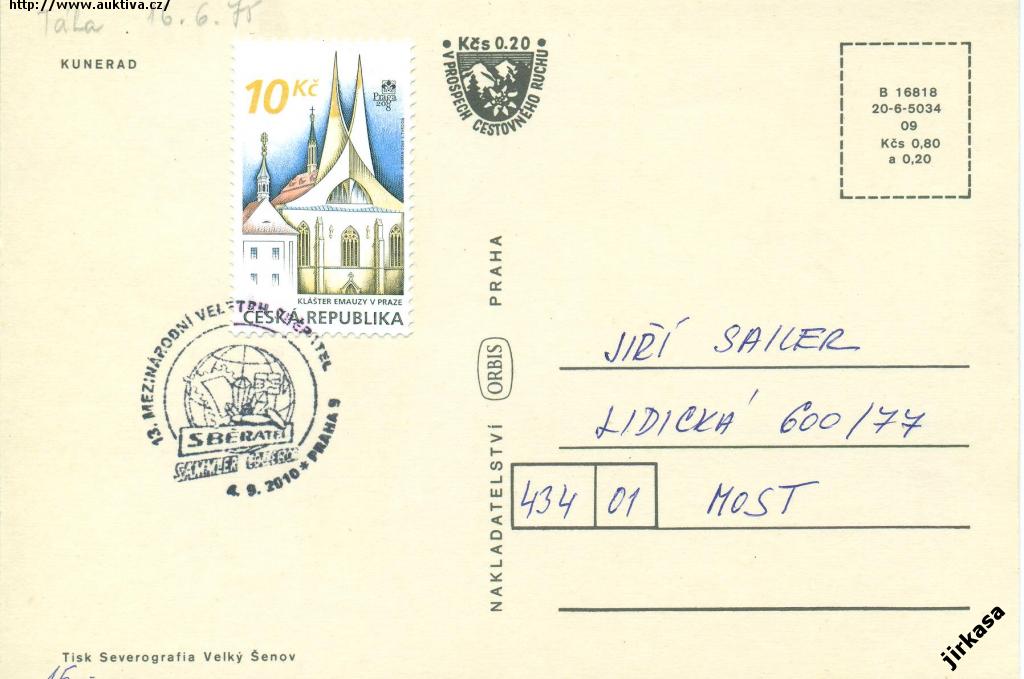 http://www.auktiva.cz/
16.6.75
KUNERAD
10 Kč
Praga
2008
KLÁŠTER EMAUZY V PRAZE
ČESKÁ REPUBLIKA
Kčs 0.20
V PROSPECH CESTOVNÉHO RUCHU
B 16818
20-6-5034
09
Kčs 0,80
a 0,20
13. MEZINÁRODNÍ VELETRH SBĚRATEL
SBĚRATEL
SAMMLER COLLECTOR
4. 9. 2010 * PRAHA 9
NAKLADATELSTVÍ ORBIS PRAHA
JIŘÍ SAILER
LIDICKÁ 600/77
434 01 MOST
Tisk Severografia Velký Šenov
15 -
jirkasa